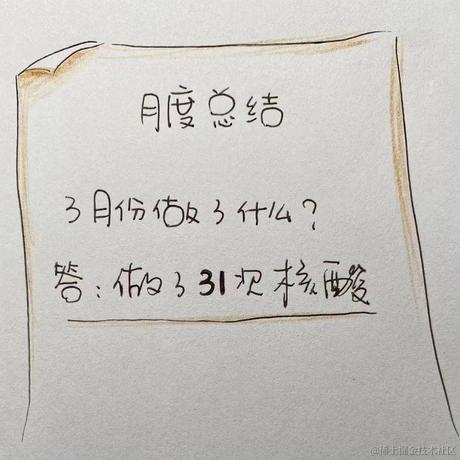 月度总结
3月份做了什么?
答:做了31次核酸
@稀土掘金技术社区